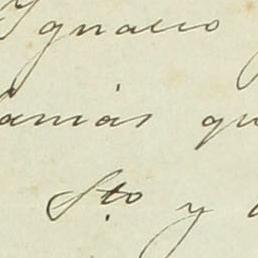 Ignacio
amás qu
Sto y